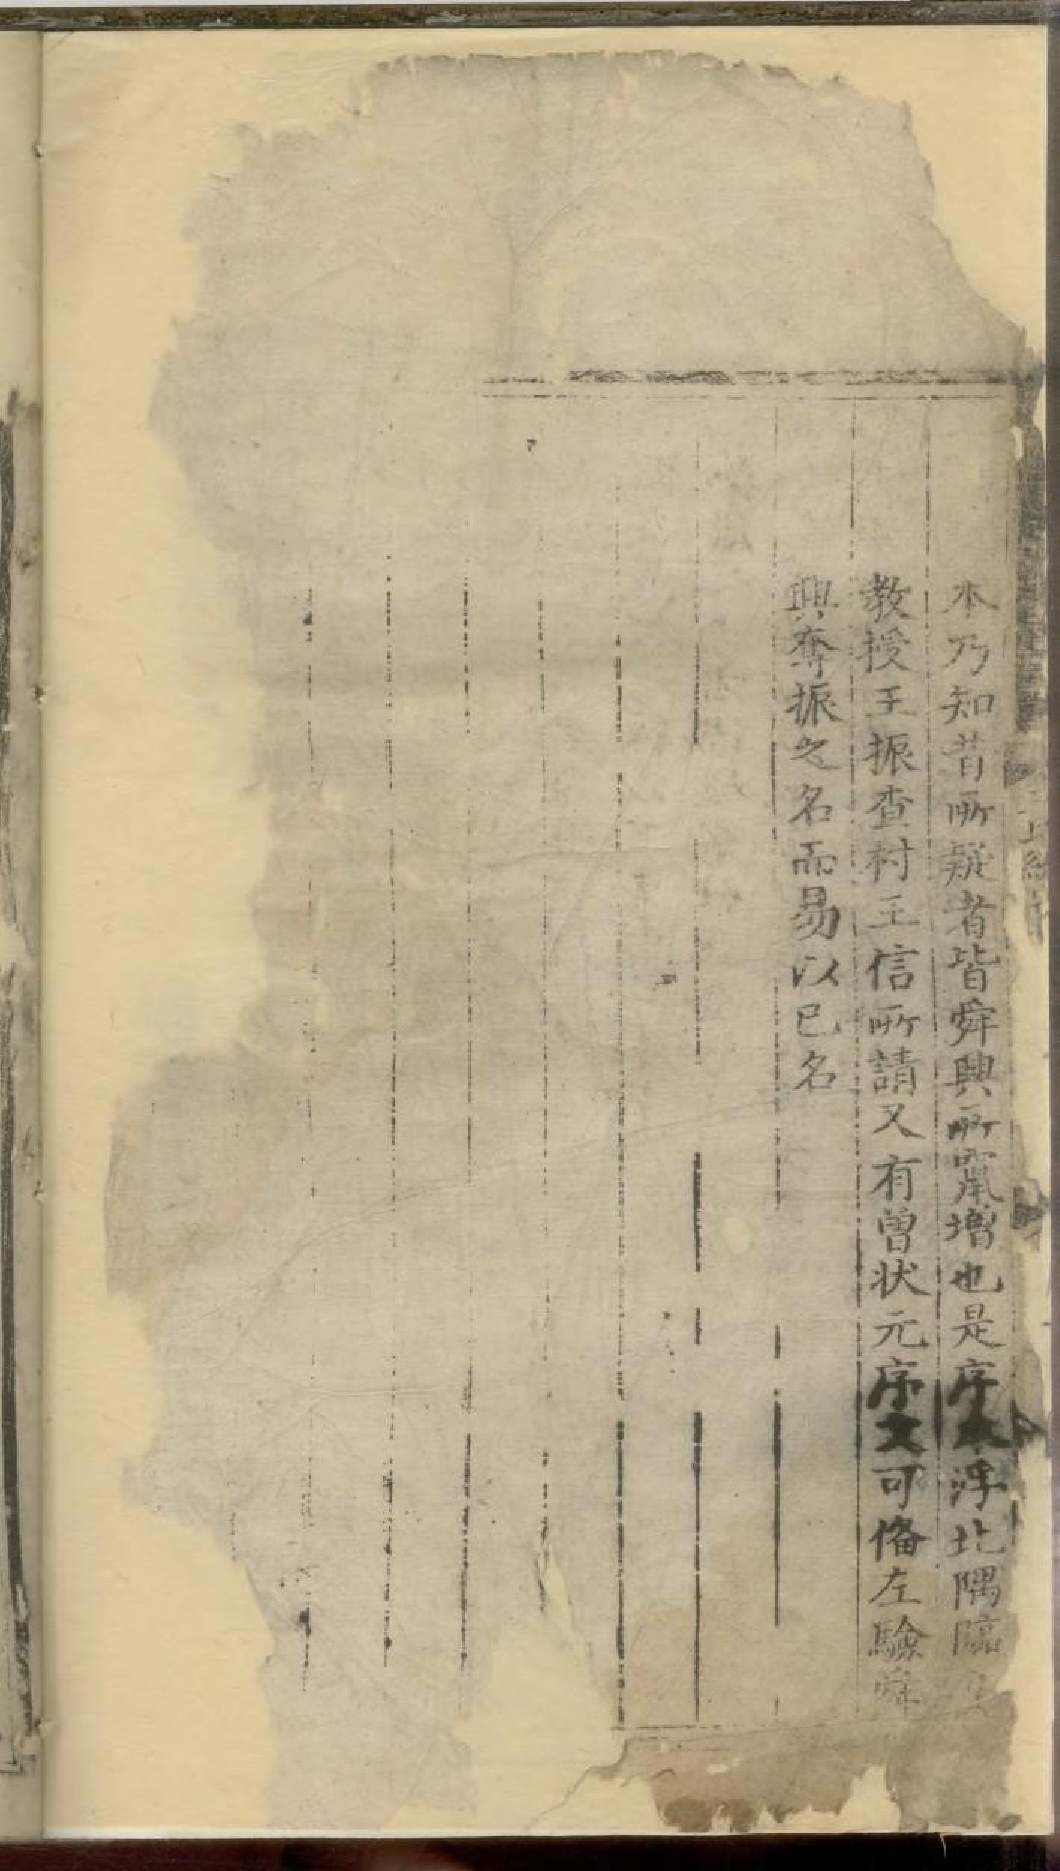 本乃知昔所疑者皆舜興所竄增也是序本浮北隅臨
教授王振查村王信所請又有曾状元序文可俻左驗舜
興奪振之名而易以已名